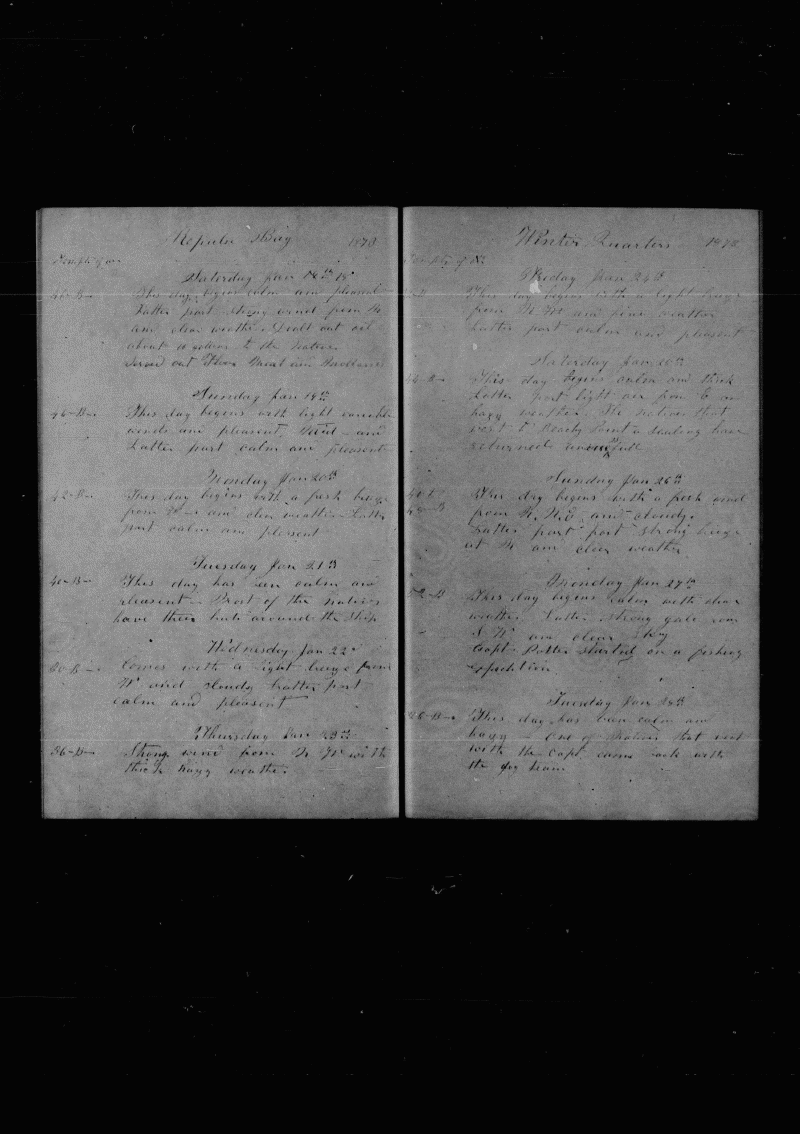 Repulse Bay 1873
Temph of air
Saturday Jan 18th
46-B- This day begins calm and pleasant
Latter part strong wind from N
and clear weather. Dealt out oil
about 10 gallons to the natives
Served out Flour Meat and
Sunday Jan 19th
46-B- This day begins with light variable
winds and pleasant.
Latter part calm and pleasent
Monday Jan 20th
42-B- This day begins with a fresh breeze
from and clear weather Latter
part calm and plesent
Tuesday Jan 21st
40-B- This day has been calm and
pleasent - Most of the natives
have their huts around the ship
Wednesday Jan 22
Comes with a light breeze from
W and cloudy Latter part
calm and pleasent
Thursday Jan 23th
36-B- Strong wind from N W with
thick hazy weather
Winter Quarters 1873
Temph of Air
Friday Jan 24th
This day begins with a light breeze
from N W and fine weather
Latter part calm and pleasent
Saturday Jan 25th
This day begins calm and thick
Latter part light air from E and
hazy weather. The natives that
went to Beach Point a sealing have
returned
Sunday Jan 26th
This day begins with a fresh wind
from N. N.E and cloudy.
Latter part part strong breeze
at N and clear weather
Monday Jan 27th
This day begins calm with clear
weather Latter strong gale from
S W and clear sky
Capt Potter started on a fishing
expedition
Tuesday Jan 28th
28-B- This day has been calm and
hazy - One of natives that went
with the Capt came back with
the dog team